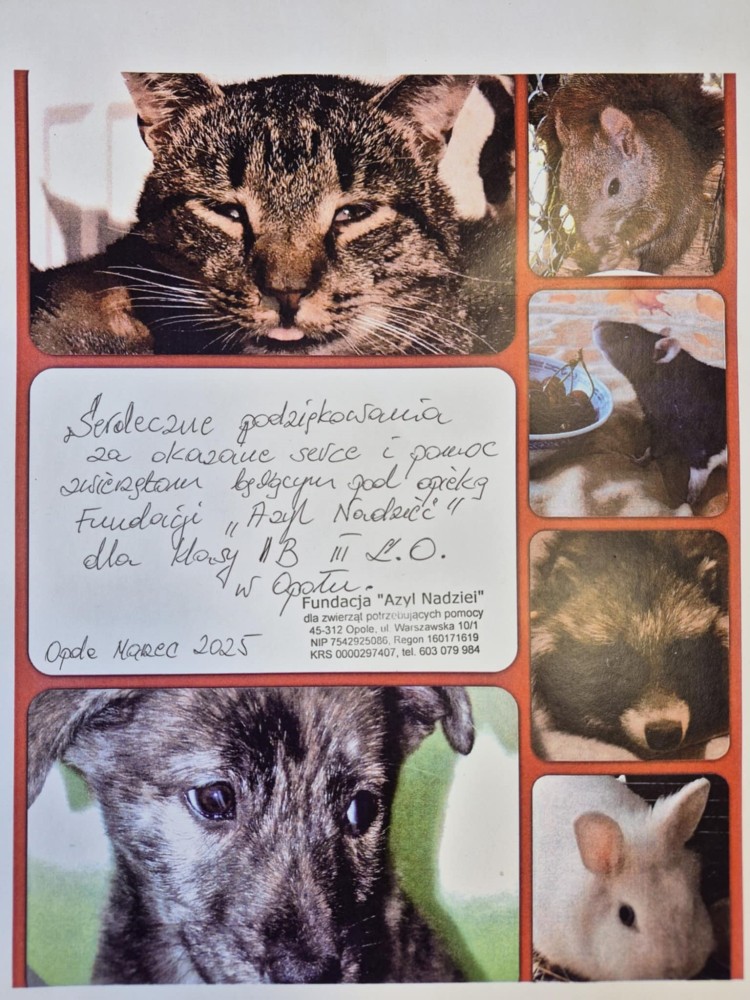 „Serdeczne podziękowania
za okazane serce i pomoc
zwierzętom będącym pod opieką
Fundacji „Azyl Nadzieć"
dla klasy II B III L.O.
w Opolu.
Fundacja "Azyl Nadziei"
dla zwierząt potrzebujących pomocy
45-312 Opole, ul. Warszawska 10/1
NIP 7542925086, Regon 160171619
KRS 0000297407, tel. 603 079 984
Opole Marzec 2025